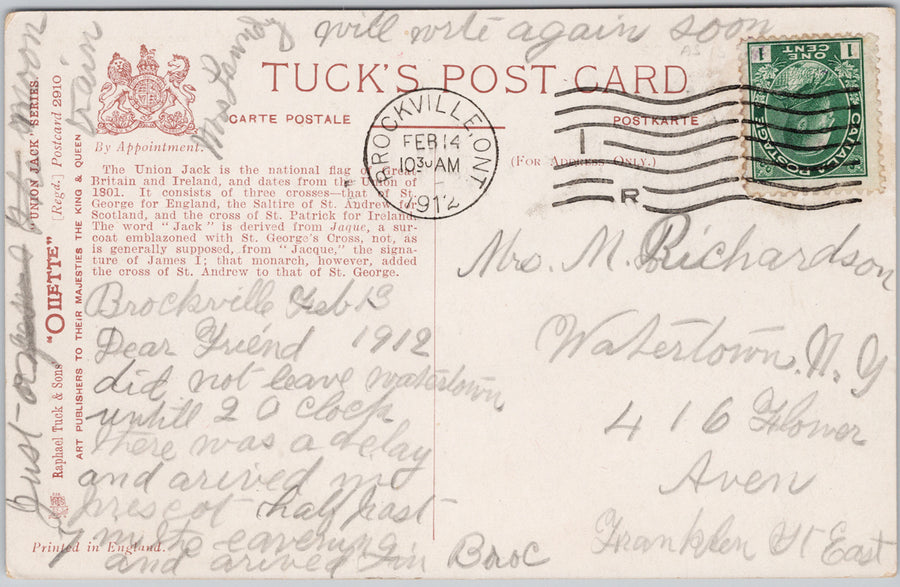 will write again soon
TUCK'S POST CARD
CARTE POSTALE
POSTKARTE
(FOR ADDRESS ONLY.)
By Appointment.
The Union Jack is the national flag of Great
Britain and Ireland, and dates from the Union of
1801. It consists of three crosses—that of St.
George for England, the Saltire of St. Andrew for
Scotland, and the cross of St. Patrick for Ireland.
The word "Jack" is derived from Jaque, a sur-
coat emblazoned with St. George's Cross, not, as
is generally supposed, from "Jacque," the signa-
ture of James I; that monarch, however, added
the cross of St. Andrew to that of St. George.
BROCKVILLE, ONT
FEB 14
1030 AM
1912
I
R
1 ONE CENT 1
CANADA POSTAGE
Brockville Feb 13
Dear Friend 1912
did not leave watertown
untill 2 O clock
there was a delay
and arived
prescot half past
7 in the eavening
and arived in Broc
Just
noon
train
Mrs
Mrs. M. Richardson
Watertown. N. Y
416 Flower
Aven
Franklen St East
"UNION JACK" SERIES.
[Regd.] Postcard 2910
Raphael Tuck & Sons "OILETTE"
ART PUBLISHERS TO THEIR MAJESTIES THE KING & QUEEN
Printed in England.